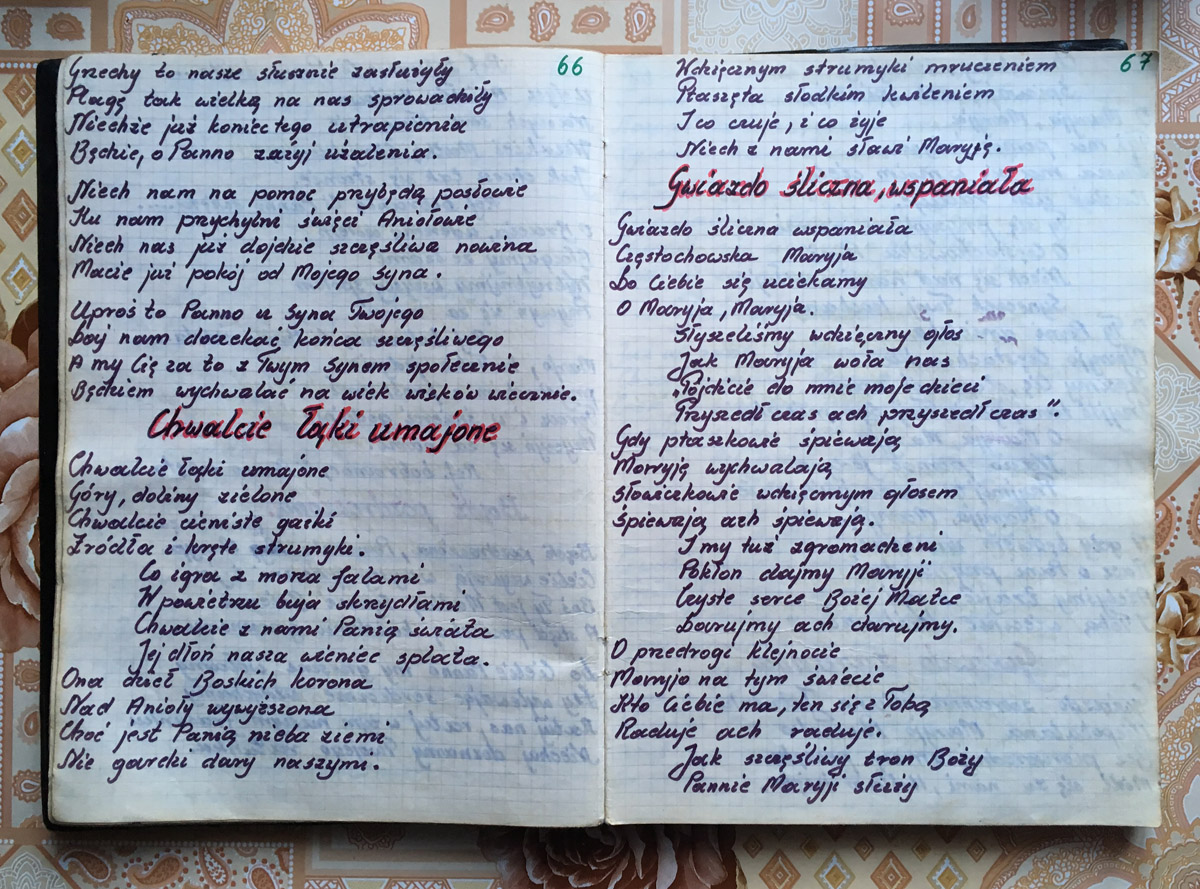 66
Grzechy to nasze słusznie zasłużyły
Plagę tak wielką na nas sprowadziły
Niechże już koniec tego utrapienia
Będzie, o Panno zażyj użalenia.
Niech nam na pomoc przybędą posłowie
Ku nam przychylni święci Aniołowie
Niech nas już dojdzie szczęśliwa nowina
Macie już pokój od Mojego Syna.
Uproś to Panno u Syna Twojego
Daj nam doczekać końca szczęśliwego
A my Cię za to z Twym Synem społecznie
Będziem wychwalać na wiek wieków wiecznie.
Chwalcie łąki umajone
Chwalcie łąki umajone
Góry, doliny zielone
Chwalcie cieniste gaiki
Źródła i kręte strumyki.
Co igra z morza falami
W powietrzu buja skrzydłami
Chwalcie z nami Panią świata
Jej dłoń nasza wieniec splata.
Ona dzieł Boskich korona
Nad Anioły wywyższona
Choć jest Panią nieba ziemi
Nie gardzi dary naszymi.
67
Wdzięcznym strumyki mruczeniem
Ptaszęta słodkim kwileniem
I co czuje, i co żyje
Niech z nami sławi Maryję.
Gwiazdo śliczna, wspaniała
Gwiazdo śliczna wspaniała
Częstochowska Maryja
Do Ciebie się uciekamy
O Maryja, Maryja.
Słyszeliśmy wdzięczny głos
Jak Maryja woła nas
„Pójdźcie do mnie moje dzieci
Przyszedł czas ach przyszedł czas".
Gdy ptaszkowie śpiewają
Maryję wychwalają
Słowiczkowie wdzięcznym głosem
Śpiewają ach śpiewają.
I my tuż zgromadzeni
Pokłon dajmy Maryji
Czyste serce Bożej Matce
Darujmy ach darujmy.
O przedrogi klejnocie
Maryjo na tym świecie
Kto Ciebie ma, ten się z Tobą
Raduje ach raduje.
Jak szczęśliwy tron Boży
Pannie Maryji służy